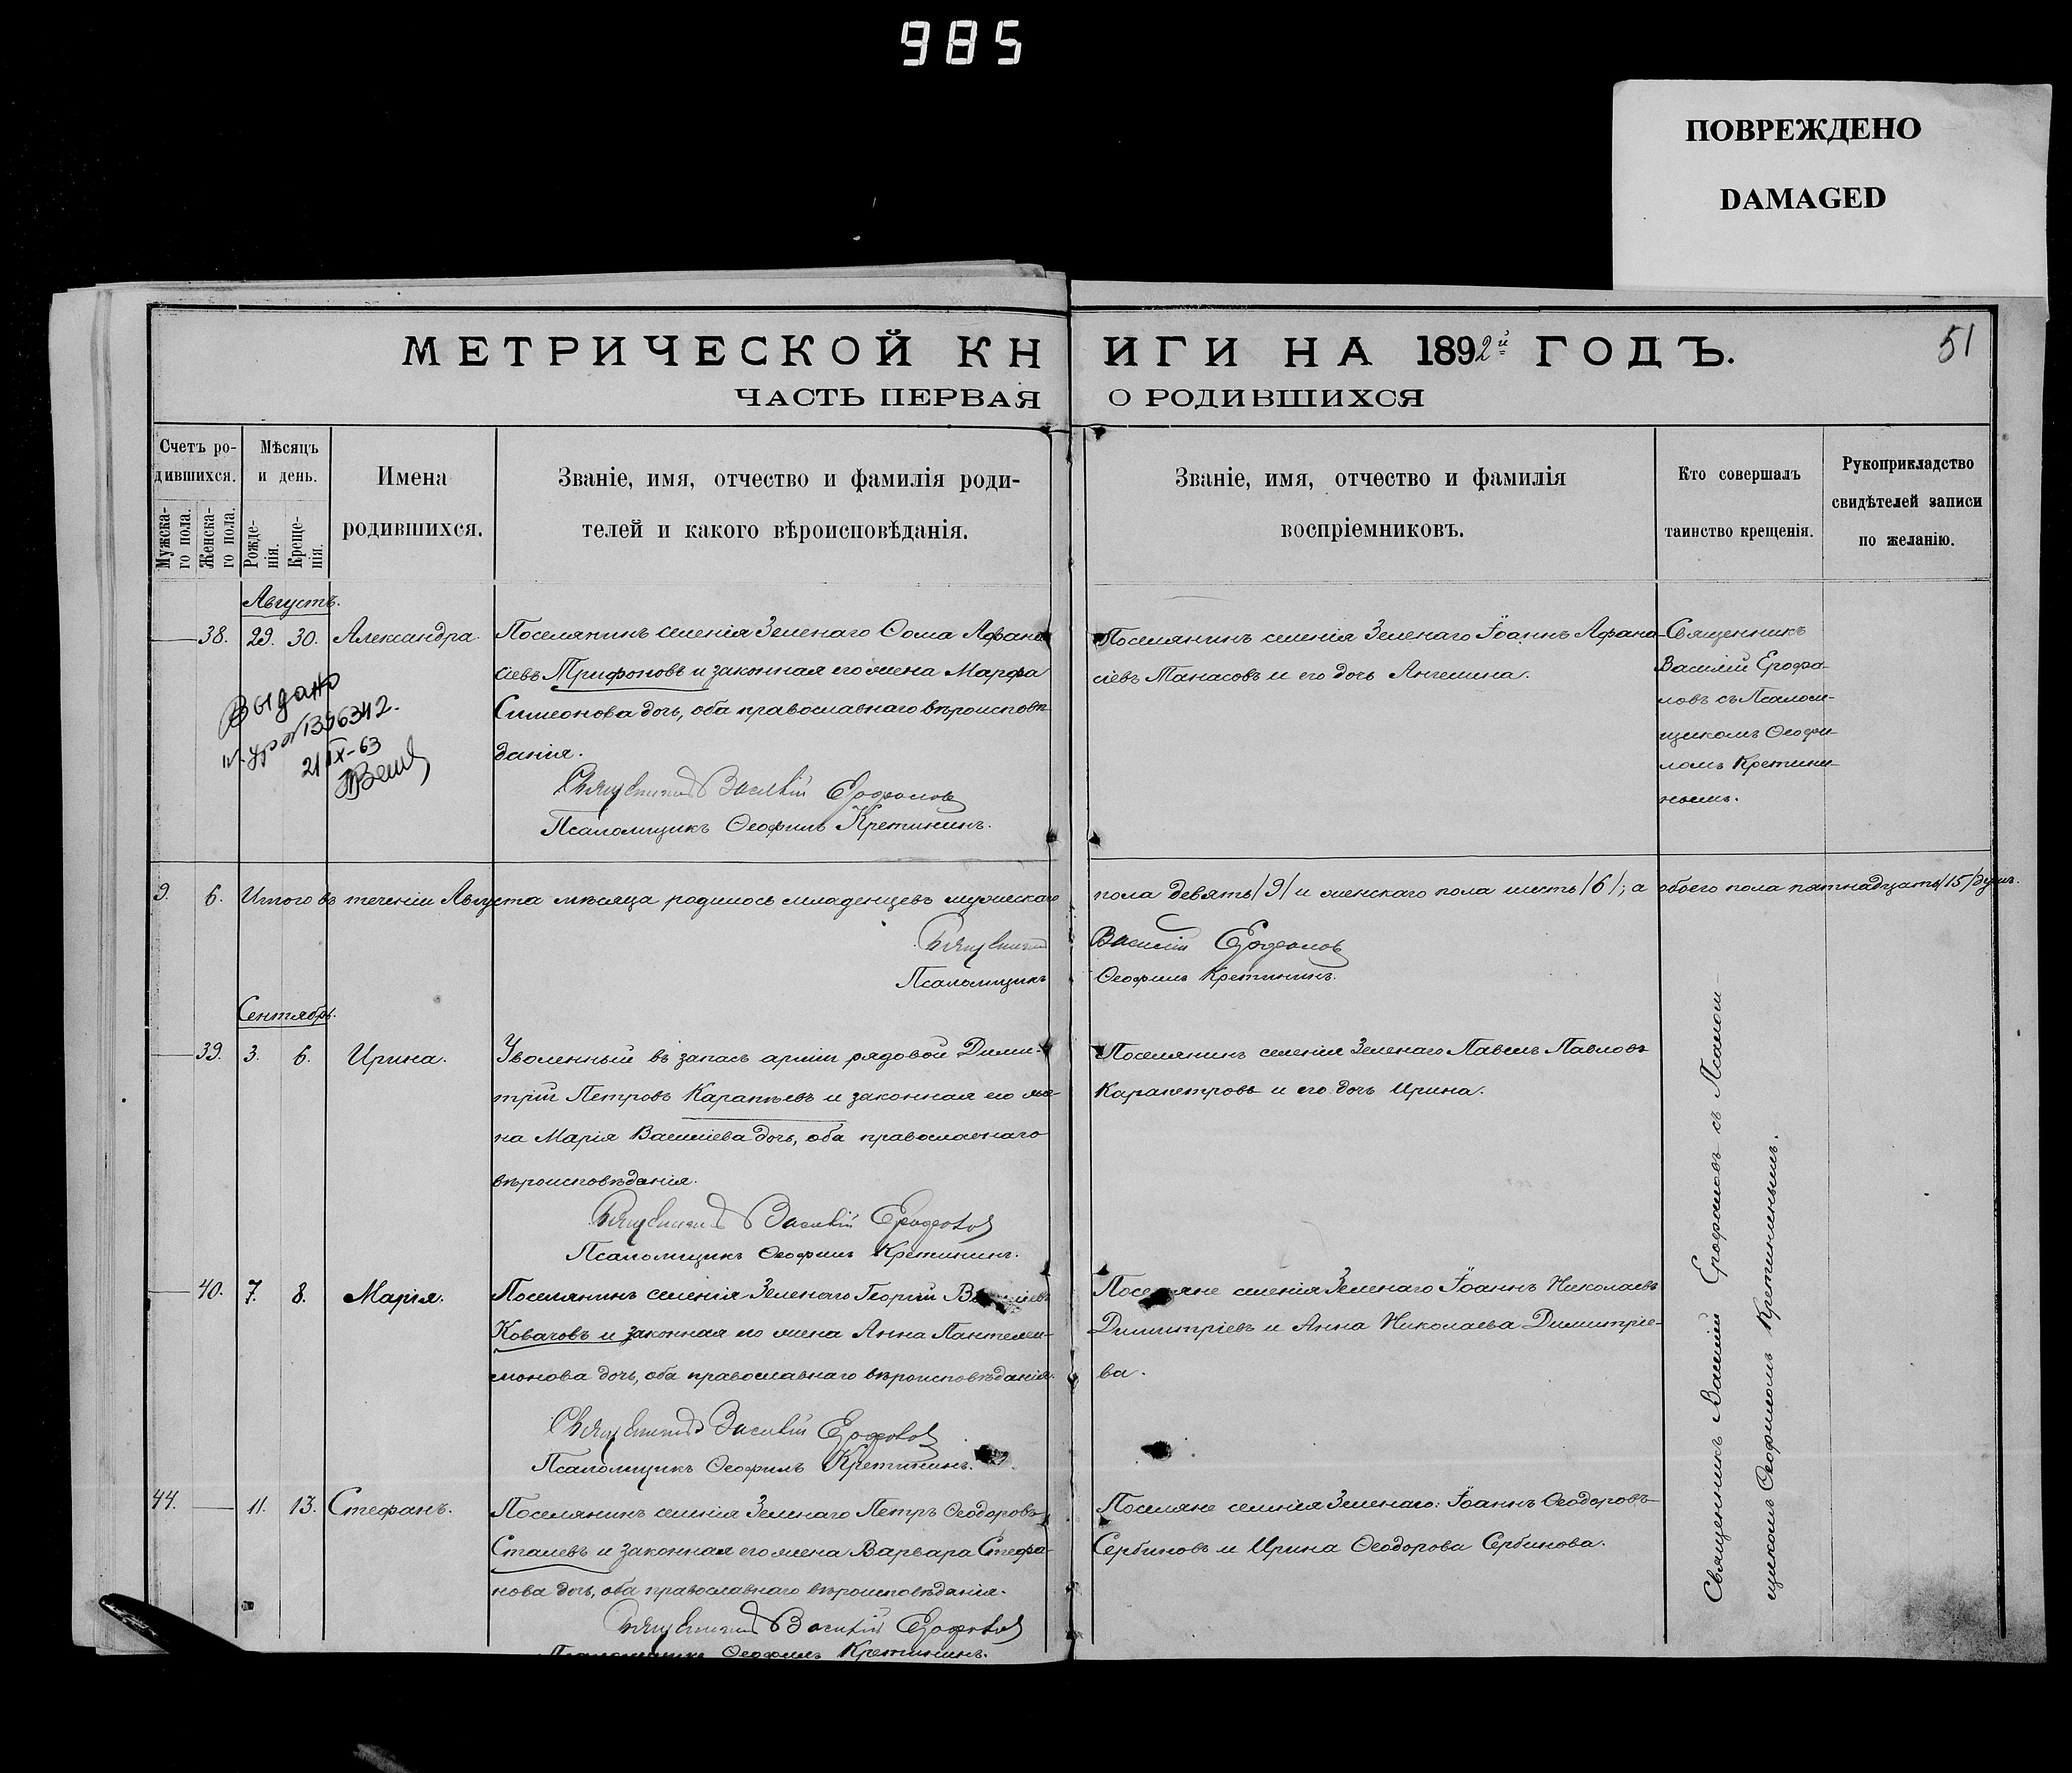 985
ПОВРЕЖДЕНО
DAMAGED
МЕТРИЧЕСКОЙ КНИГИ НА 1892й ГОДЪ.
51
ЧАСТЬ ПЕРВАЯ О РОДИВШИХСЯ
Счетъ ро-
дившихся.
Мужска-
го пола.
Женска-
го пола.
Мѣсяцъ
и день.
Рожде-
нія.
Креще-
нія.
Имена
родившихся.
Званіе, имя, отчество и фамилія роди-
телей и какого вѣроисповѣданія.
Званіе, имя, отчество и фамилія
воспріемниковъ.
Кто совершалъ
таинство крещенія.
Рукоприкладство
свидѣтелей записи
по желанію.
Августъ.
38. 29. 30. Александра.
Поселянинъ селенія Зеленаго Ѳома Афана-
сіевъ Трифоновъ и законная его жена Марфа
Симеонова дочь, оба православнаго вѣроисповѣ-
данія.
Священникъ Василій Ерофаловъ
Псаломщикъ Ѳеофилъ Кретининъ.
Поселянинъ селенія Зеленаго Іоаннъ Афана-
сіевъ Танасовъ и его дочь Ангелина.
Священникъ
Василій Ерофа-
ловъ съ Псалом-
щикомъ Ѳеофи-
ломъ Кретини-
нымъ.
Выдано
1396342.
21/IX-63
9. 6. Итого въ теченіи Августа мѣсяца родилось младенцевъ мужескаго пола девять /9/ и женскаго пола шесть /6/; а обоего пола пятнадцать /15/ душъ.
Священникъ Василій Ерофаловъ
Псаломщикъ Ѳеофилъ Кретининъ.
Сентябрь.
39. 3. 6. Ирина.
Уволенный въ запасъ арміи рядовой Дими-
трій Петровъ Карапѣевъ и законная его же-
на Марія Василіева дочь, оба православнаго
вѣроисповѣданія.
Священникъ Василій Ерофаловъ
Псаломщикъ Ѳеофилъ Кретининъ.
Поселянинъ селенія Зеленаго Павелъ Павловъ
Карапетровъ и его дочь Ирина.
40. 7. 8. Марія.
Поселянинъ селенія Зеленаго Георгій Василіевъ
Ковачовъ и законная его жена Анна Пантелей-
монова дочь, оба православнаго вѣроисповѣданія.
Священникъ Василій Ерофаловъ
Псаломщикъ Ѳеофилъ Кретининъ.
Поселяне селенія Зеленаго Іоаннъ Николаевъ
Димитріевъ и Анна Николаева Димитріе-
ва.
44. 11. 13. Стефанъ.
Поселянинъ селенія Зеленаго Петръ Ѳеодоровъ
Сталевъ и законная его жена Варвара Стефа-
нова дочь, оба православнаго вѣроисповѣданія.
Священникъ Василій Ерофаловъ
Псаломщикъ Ѳеофилъ Кретининъ.
Поселяне селенія Зеленаго: Іоаннъ Ѳеодоровъ
Сербиновъ и Ирина Ѳеодорова Сербинова.
Священникъ Василій Ерофаловъ съ Псалом-
щикомъ Ѳеофиломъ Кретининымъ.